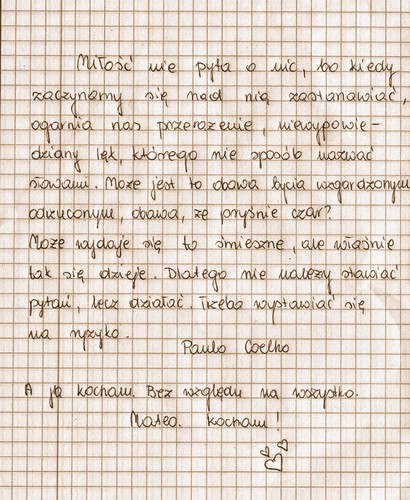 Miłość nie pyta o nic, bo kiedy
zaczynamy się nad nią zastanawiać,
ogarnia nas przerażenie, niewypowie-
dziany lęk, którego nie sposób nazwać
słowami. Może jest to obawa bycia wzgardzonym,
odrzuconym, obawa, że pryśnie czar?
Może wydaje się to śmieszne, ale właśnie
tak się dzieje. Dlatego nie należy stawiać
pytań, lecz działać. Trzeba wystawiać się
na ryzyko.
Paulo Coelho
A ja kocham. Bez względu na wszystko.
Mateo. kocham!